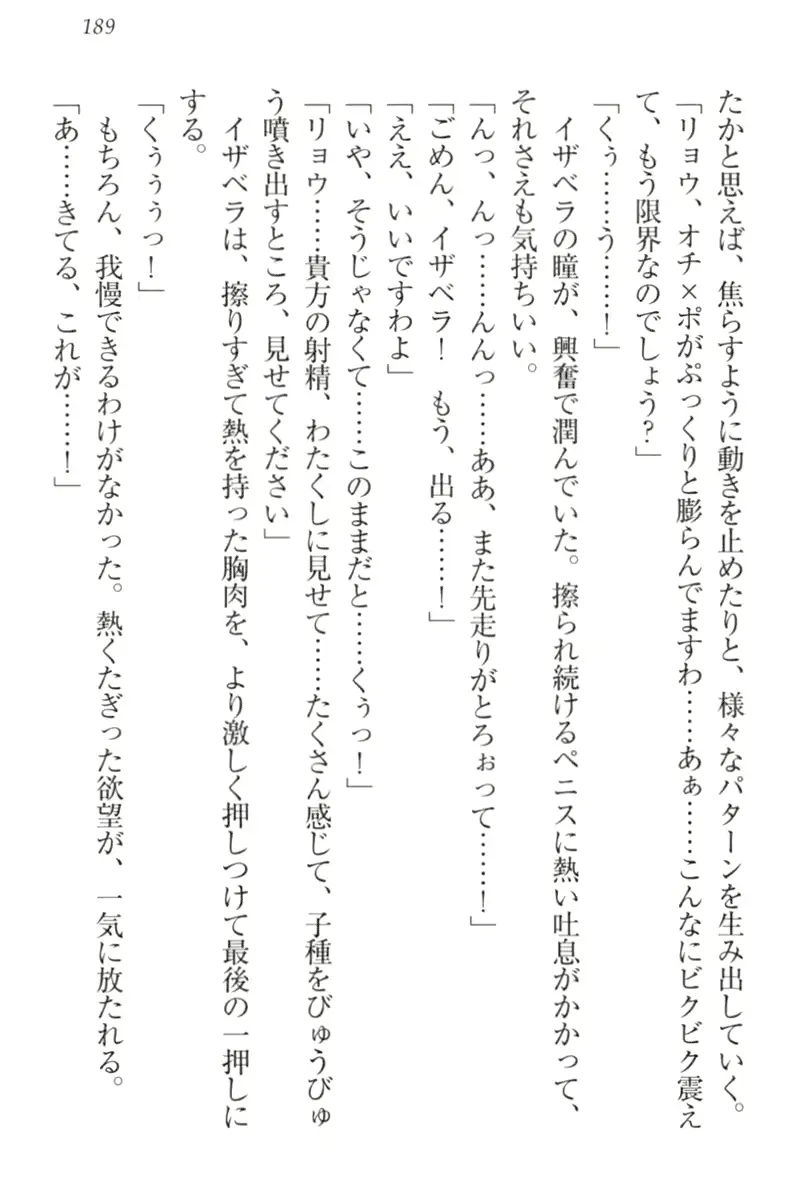 189
たかと思えば、焦らすように動きを止めたりと、様々なパターンを生み出していく。
「リョウ、オチ×ポがぷっくりと膨らんでますわ……あぁ……こんなにビクビク震え
て、もう限界なのでしょう？」
「くぅ……う……！」
　イザベラの瞳が、興奮で潤んでいた。擦られ続けるペニスに熱い吐息がかかって、
それさえも気持ちいい。
「んっ、んっ……んんっ……ああ、また先走りがとろぉって……！」
「ごめん、イザベラ！　もう、出る……！」
「ええ、いいですわよ」
「いや、そうじゃなくて……このままだと……くぅっ！」
「リョウ……貴方の射精、わたくしに見せて……たくさん感じて、子種をびゅうびゅ
う噴き出すところ、見せてください」
　イザベラは、擦りすぎて熱を持った胸肉を、より激しく押しつけて最後の一押しに
する。
「くぅぅぅっ！」
　もちろん、我慢できるわけがなかった。熱くたぎった欲望が、一気に放たれる。
「あ……きてる、これが……！」